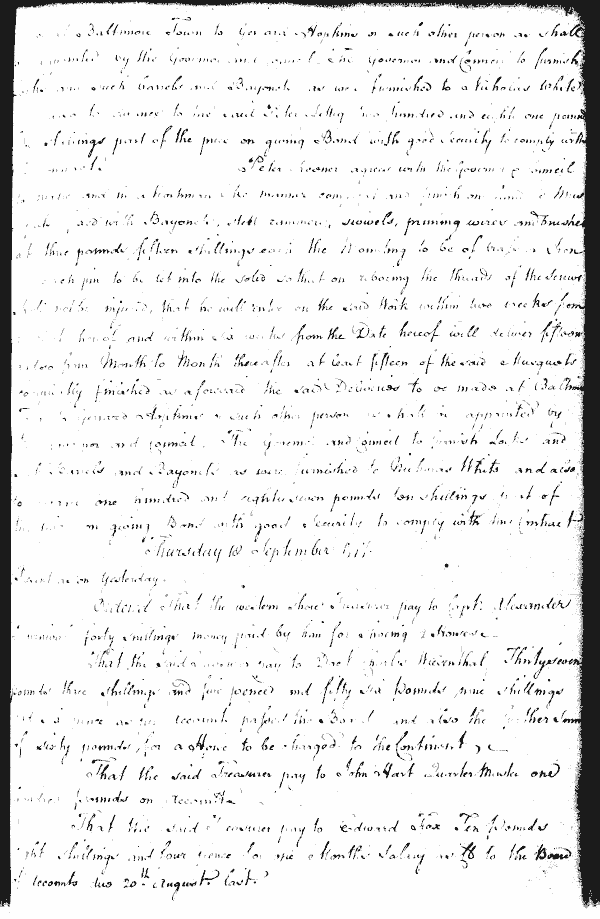 Baltimore Town to Gerard Hopkins or such other person as shall
appointed by the Governor and Council. The Governor and Council to furnish
and such barrels and Bayonets as were furnished to Nicholas White
to advance to the said Peter two hundred and eighty one pounds
shillings part of the price on giving Bond with good Security to comply with
Peter agrees with the Governor & Council
to make and in a workmanlike manner compleat and finish one hundred Mus
with Bayonets, steel rammers, swivels, pruning wires and brushes
at three pounds fifteen shillings each the Mounting to be of brass or Iron
each pin to be let into the solid so that on reboring the threads of the screws
shall not be injured, that he will enter on the said Work within two weeks from
hereof and within six weeks from the Date hereof will deliver fifteen
also from Month to Month thereafter at least fifteen of the said Musquets
compleatly finished as aforesaid the said Deliveries to be made at Baltimore
Town to Gerard Hopkins or such other person as shall be appointed by
the Governor and Council. The Governor and Council to furnish Locks and
Barrels and Bayonets as were furnished to Nicholas White and also
to advance one hundred and eighty seven pounds ten shillings part of
the price on giving Bond with good Security to comply with this Contract
Thursday 18 September 1777
Present as on Yesterday.
Ordered That the western shore Treasurer pay to Capt. Alexander
forty shillings money paid by him for shoeing Horses
That the said Treasurer pay to Doct. Charles Wiesenthal Thirty seven
pounds three shillings and five pence and fifty six pounds nine shillings
and six pence as per accounts passed the Board and also the further Sum
of sixty pounds for a Horse to be charged to the Continent
That the said Treasurer pay to John Hart Quarter Master one
hundred pounds on Account
That the said Treasurer pay to Edward Fox Ten pounds
eight shillings and four pence for one Months Salary as to the Board
Accounts due 20th August last.